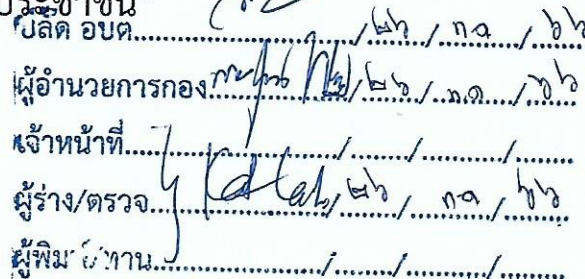 ประชาชน
ปลัด อบต............................/๒๖/ กค /๖๖
ผู้อำนวยการกอง............../๒๖/ กค /๖๖
เจ้าหน้าที่............................/........./............/.........
ผู้ร่าง/ตรวจ............................/๒๖/ กค /๖๖
ผู้พิมพ์/ทาน............................/........./............/.........